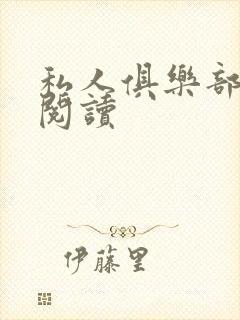 私人俱樂部
閱讀
伊藤里